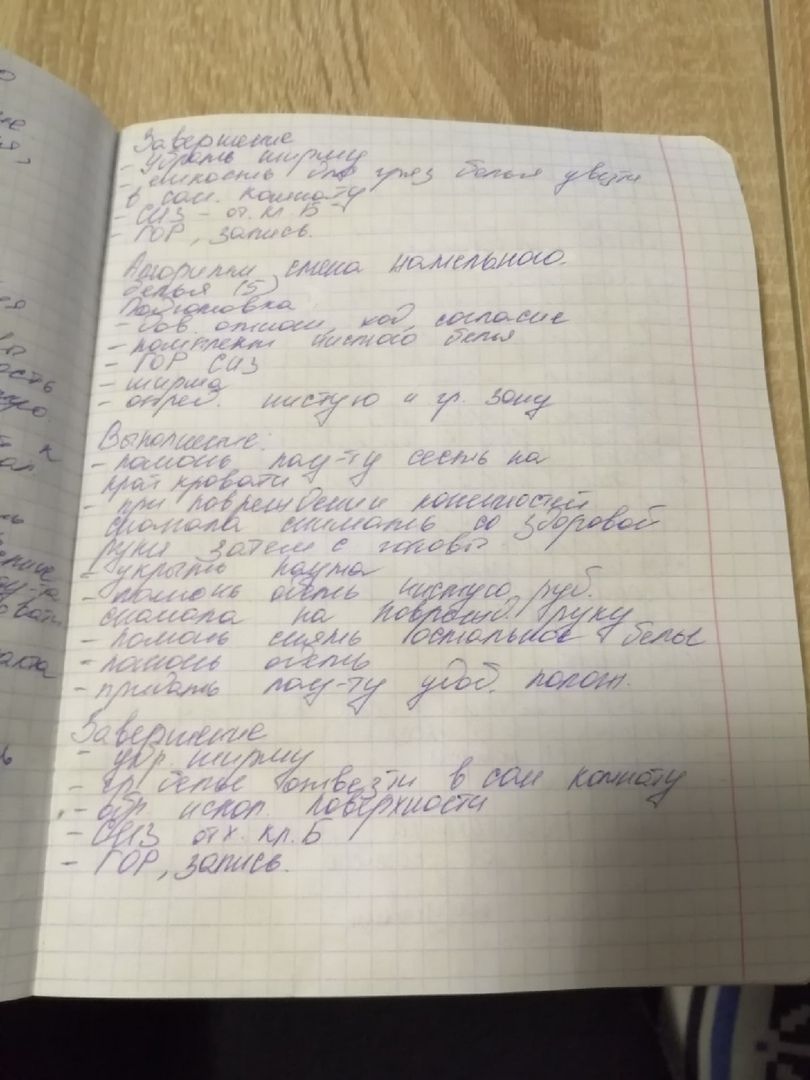 Завершение
- убрать ширму
- емкость для гряз белья увезти
в сан. комнату
- СИЗ - от. кл. Б
- ГОР, запись.
Алгоритм смена нательного
белья (5)
Подготовка
- дов. отнош, ход, согласие
- комплект чистого белья
- ГОР СИЗ
- ширма
- опред. чистую и гр. зону
Выполнение:
- помочь пац-ту сесть на
край кровати
- при повреждении конечностей
сначала снимать со здоровой
руки затем с головы
- укрыть пацта
- помочь одеть чистую руб.
сначала на поврежд. руку
- помочь снять остальное белье
- помочь одеть
- придать пац-ту удоб. полож.
Завершение
- убр. ширму
- гр белье отвезти в сан комнату
- обр. испол. поверхности
- СИЗ отх. кл. Б
- ГОР, запись.